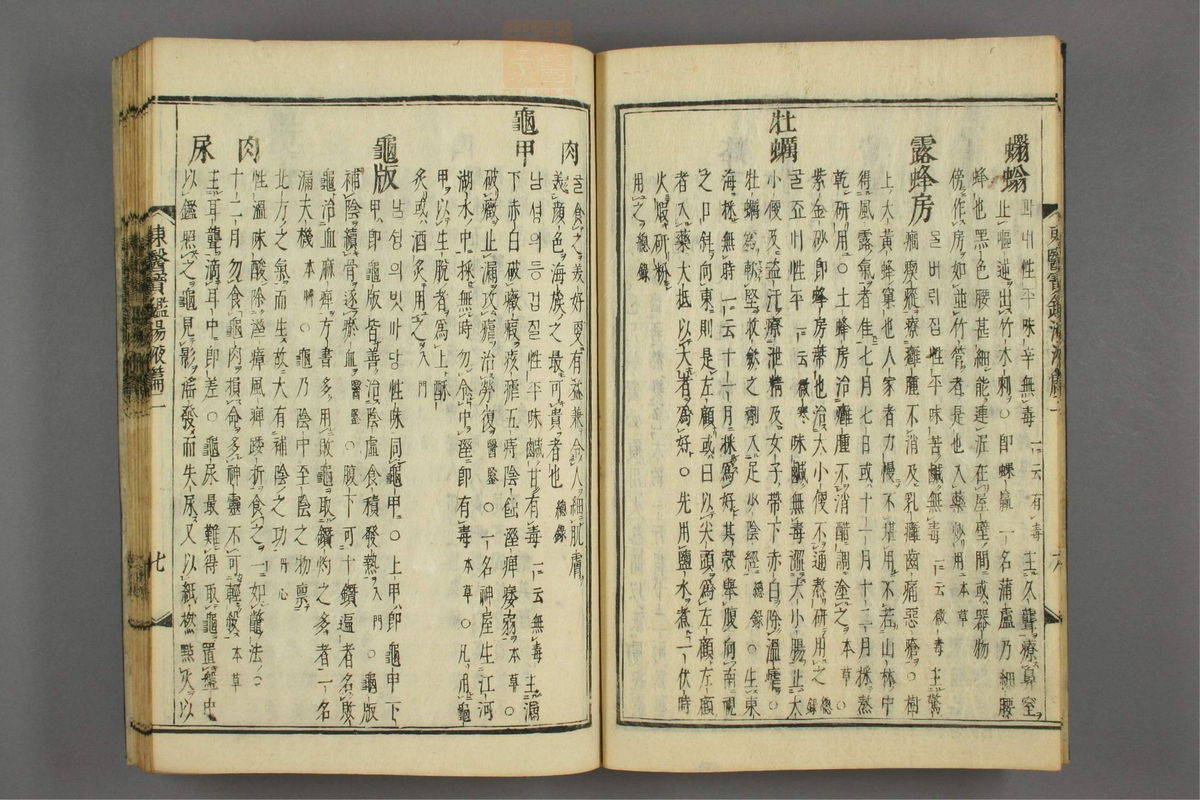 蠮螉 性平味辛無毒一云有毒主久聾療鼻窒
止嘔逆出竹木刺○即蜾蠃一名蒲盧乃細腰
蜂也黑色腰甚細能連泥在屋壁間或器物
傍作房如並竹管者是也入藥炒用本草
露蜂房 性平味苦鹹無毒一云微毒主驚
癎瘈瘲療癰腫不消及乳癰齒痛惡瘡○樹
上大黃蜂窠也人家者力慢不堪用不若山林中
得風露氣者佳七月七日或十一月十二月採熬
乾研用○土蜂房治癰腫不消醋調塗之本草○
紫金砂即蜂房蔕也治大小便不通熬研用之總錄
牡蠣 性平一云微寒味鹹無毒澁大小腸止大
小便及盜汗療泄精及女子帶下赤白除溫瘧○
牡蠣爲軟堅收斂之劑入足少陰經總錄○生東
海採無時一云十一月採爲好其殼舉腹向南視
之口斜向東則是左顧或曰以尖頭爲左顧左顧
者入藥大抵以大者爲好○先用鹽水煮一伏時
火煅研粉
用之總錄
肉 食之美好更有益兼令人細肌膚
美顏色海族之最可貴者也總錄
龜甲 남셩의등겁질性平味鹹甘有毒一云無毒主漏
下赤白破癥瘕痎瘧五痔陰蝕濕痺痿弱本草○
破癥止漏攻瘧治勞復醫鑒○一名神屋生江河
湖水中採無時勿令中濕即有毒本草○凡用龜
甲以生脫者爲上酥
炙或酒炙用之入門
龜版 性味同龜甲○上甲即龜甲下
甲即龜版皆善治陰虛食積發熱入門○龜版
補陰續骨逐瘀血醫鑒○腹下可十鑽遍者名敗
龜治血麻痺方書多用敗龜取鑽灼之多者一名
漏天機本草○龜乃陰中至陰之物稟
北方之氣而生故大有補陰之功丹心
肉 性溫味酸除濕瘴風痺踒折食之一如鼈法○
十二月勿食龜肉損命多神靈不可輕殺本草
尿 主耳聾滴耳中即差○龜尿最難得取龜置盤中
以鑑照之龜見影淫發而失尿又以紙撚點火以
東醫寶鑑湯液篇二
七